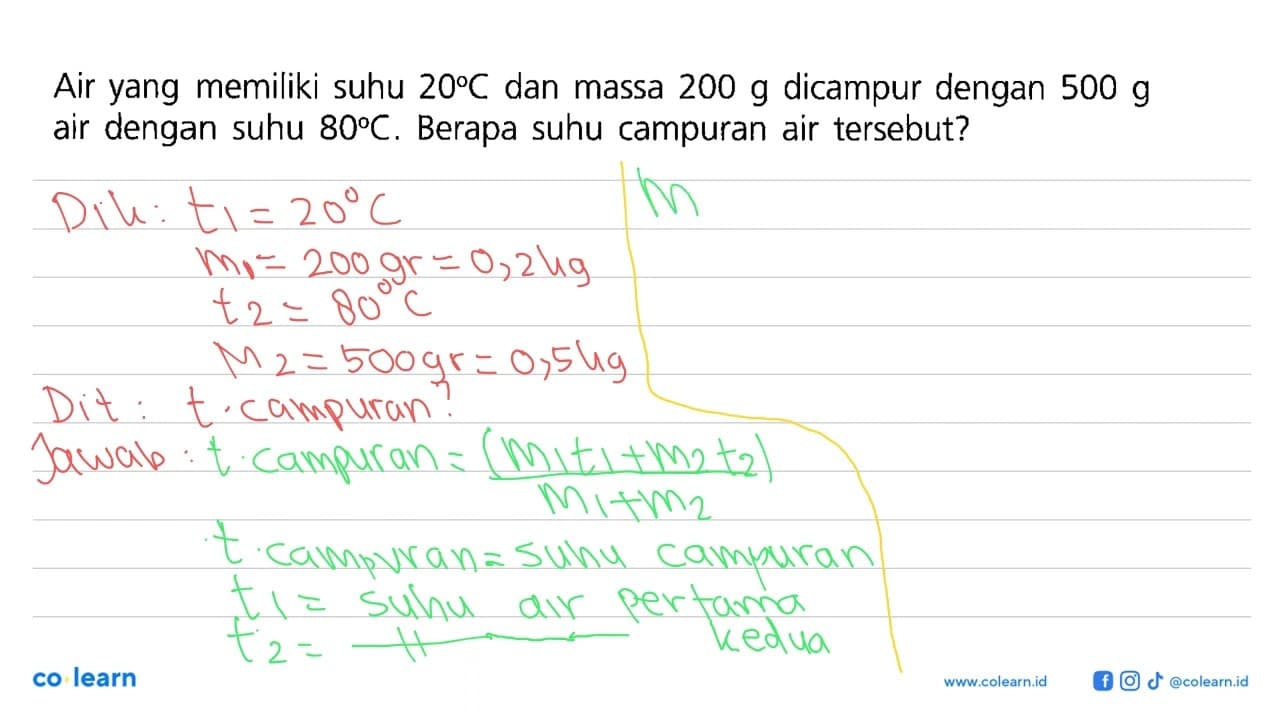 Air yang memiliki suhu 20°C dan massa 200 g dicampur dengan 500 g
air dengan suhu 80°C. Berapa suhu campuran air tersebut?
Dik: t1 = 20°C
m1 = 200 gr = 0,2 kg
t2 = 80°C
M2 = 500 gr = 0,5 kg
Dit: t.campuran?
Jawab: t.campuran = (m1t1+m2t2)
m1+m2
t.campuran = suhu campuran
t1 = suhu air pertama
t2 = —〃— kedua
m
co learn
www.colearn.id
@colearn.id